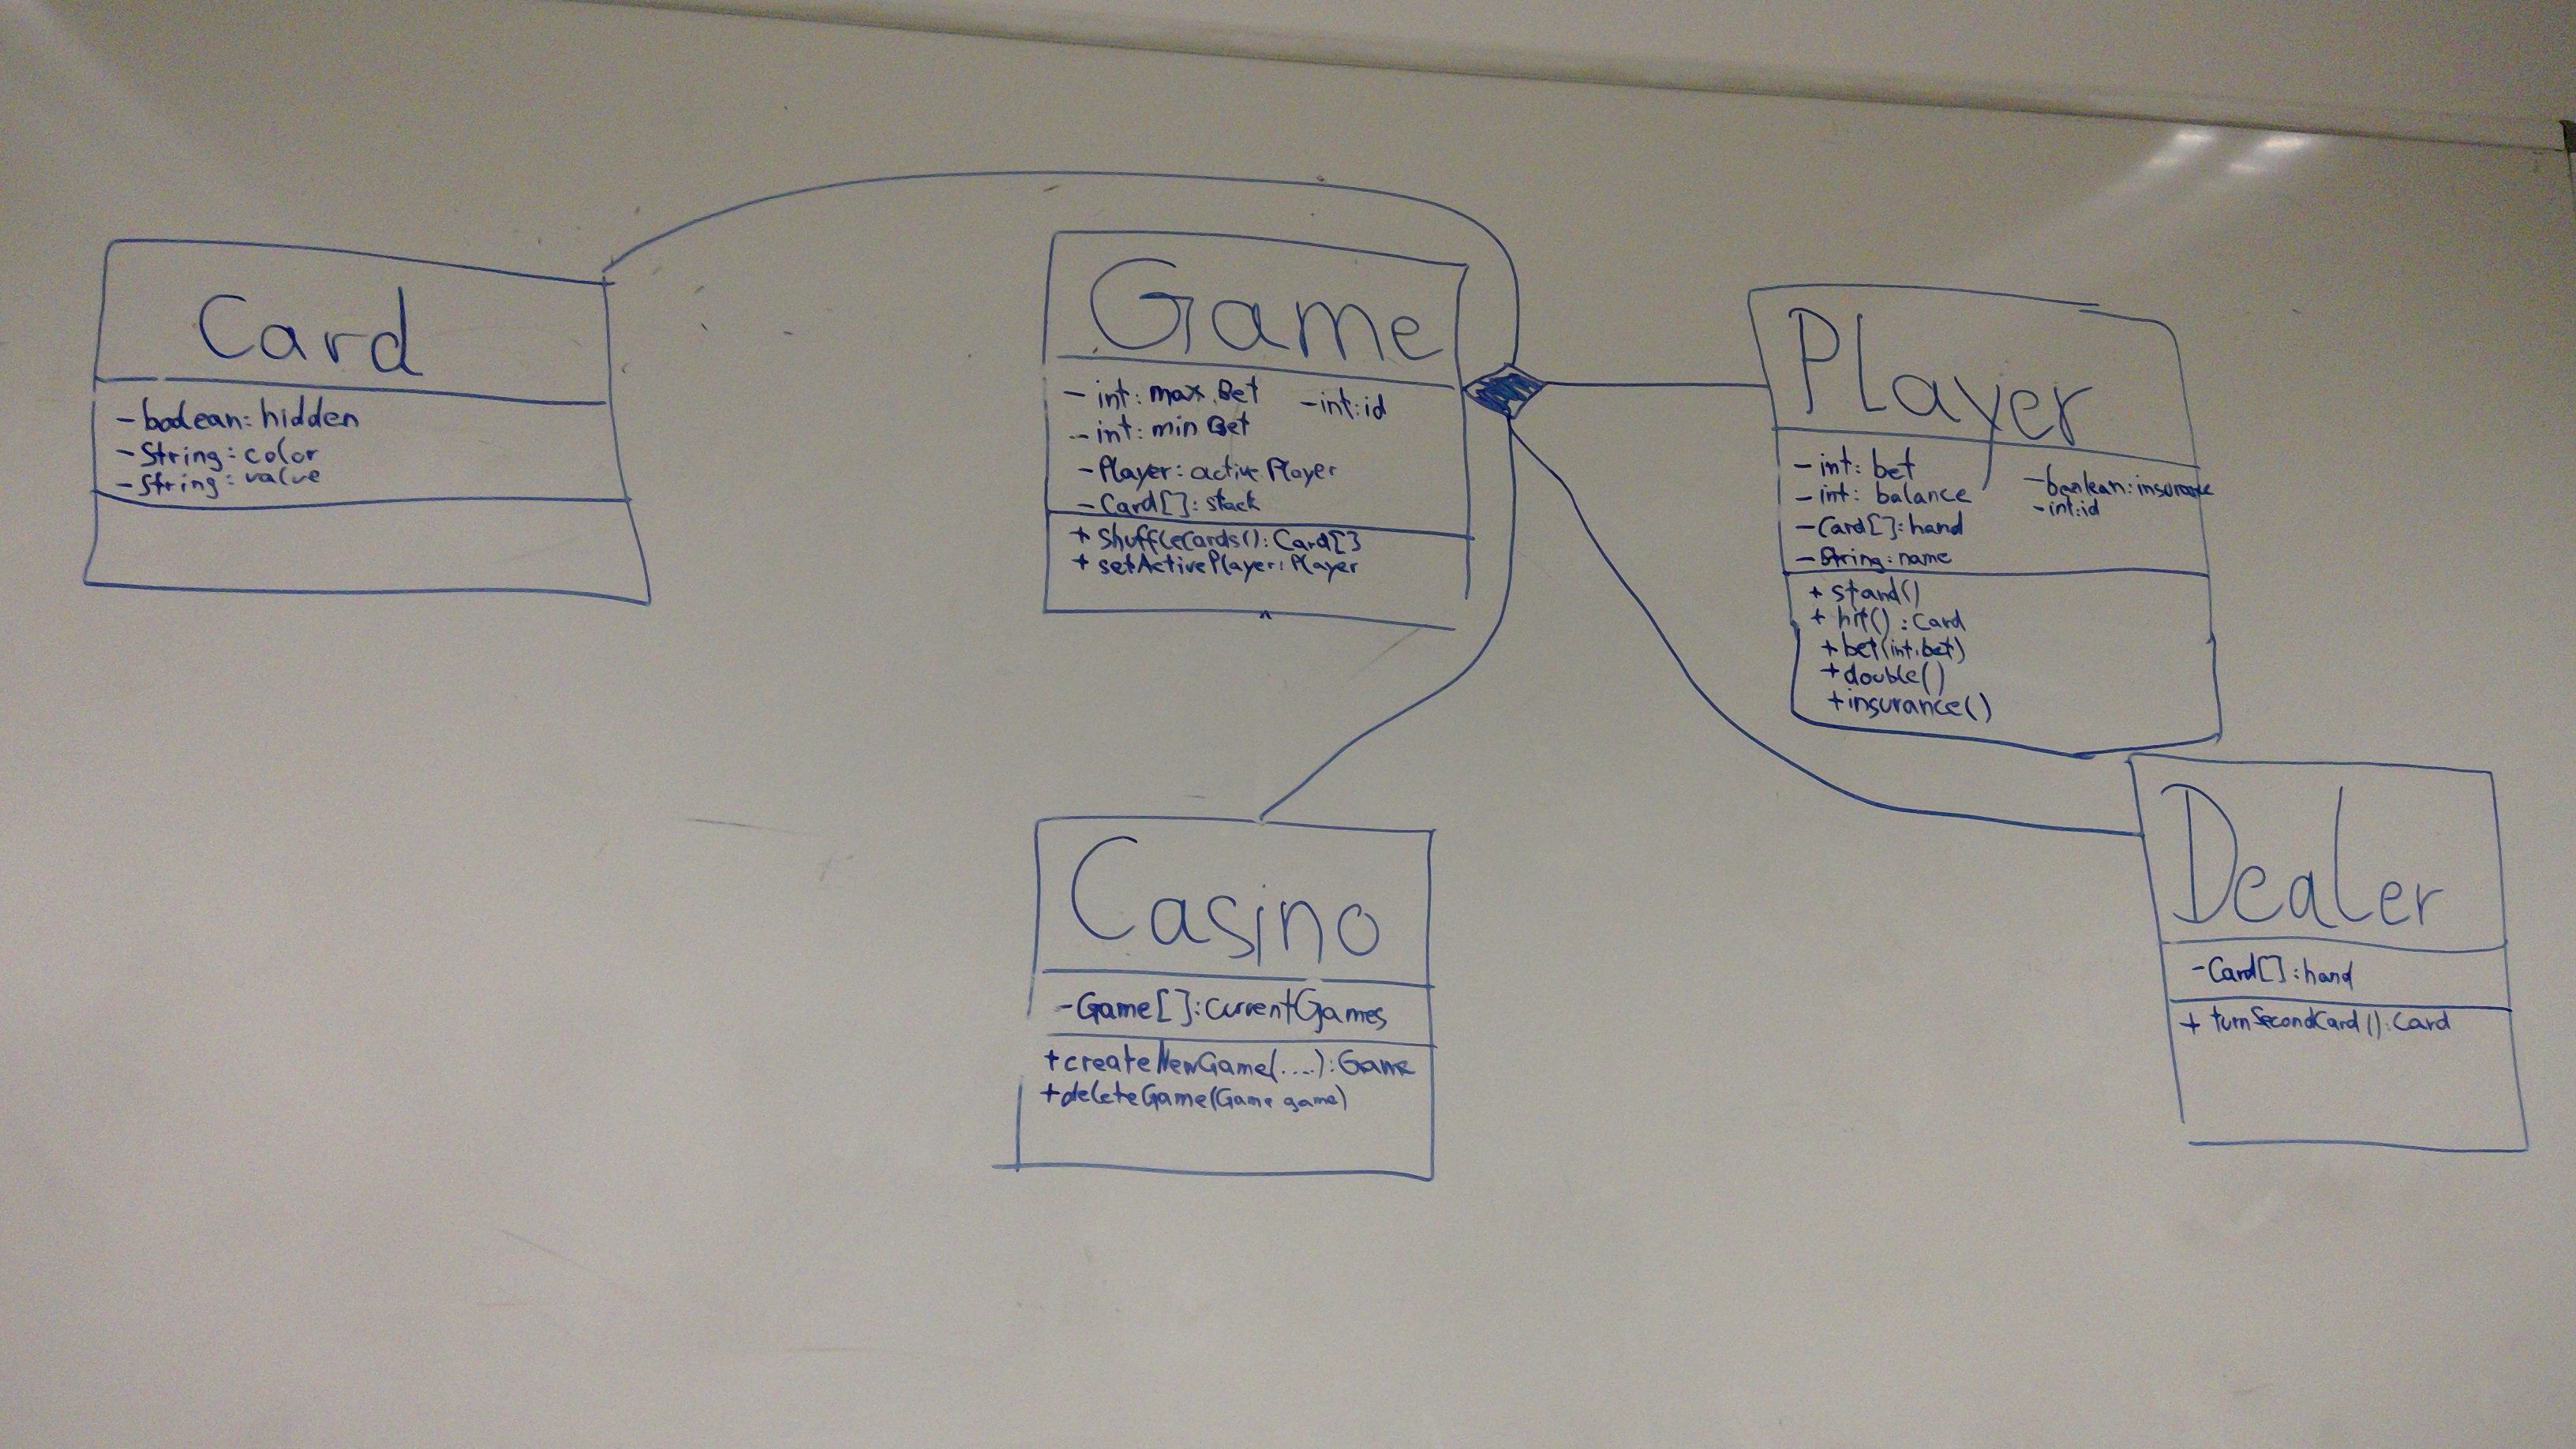 Card
- boolean: hidden
- String: color
- String: value
Game
- int: max.Bet
- int: id
- int: min Bet
- Player: active Player
- Card[]: stack
+ ShuffleCards(): Card[]
+ setActivePlayer: Player
Player
- int: bet
- int: balance
- boolean: insurance
- int: id
- Card[]: hand
- String: name
+ stand()
+ hit() : Card
+ bet(int:bet)
+ double()
+ insurance()
Casino
- Game[]: currentGames
+ createNewGame(....): Game
+ deleteGame(Game game)
Dealer
- Card[]: hand
+ turnSecondCard(): Card